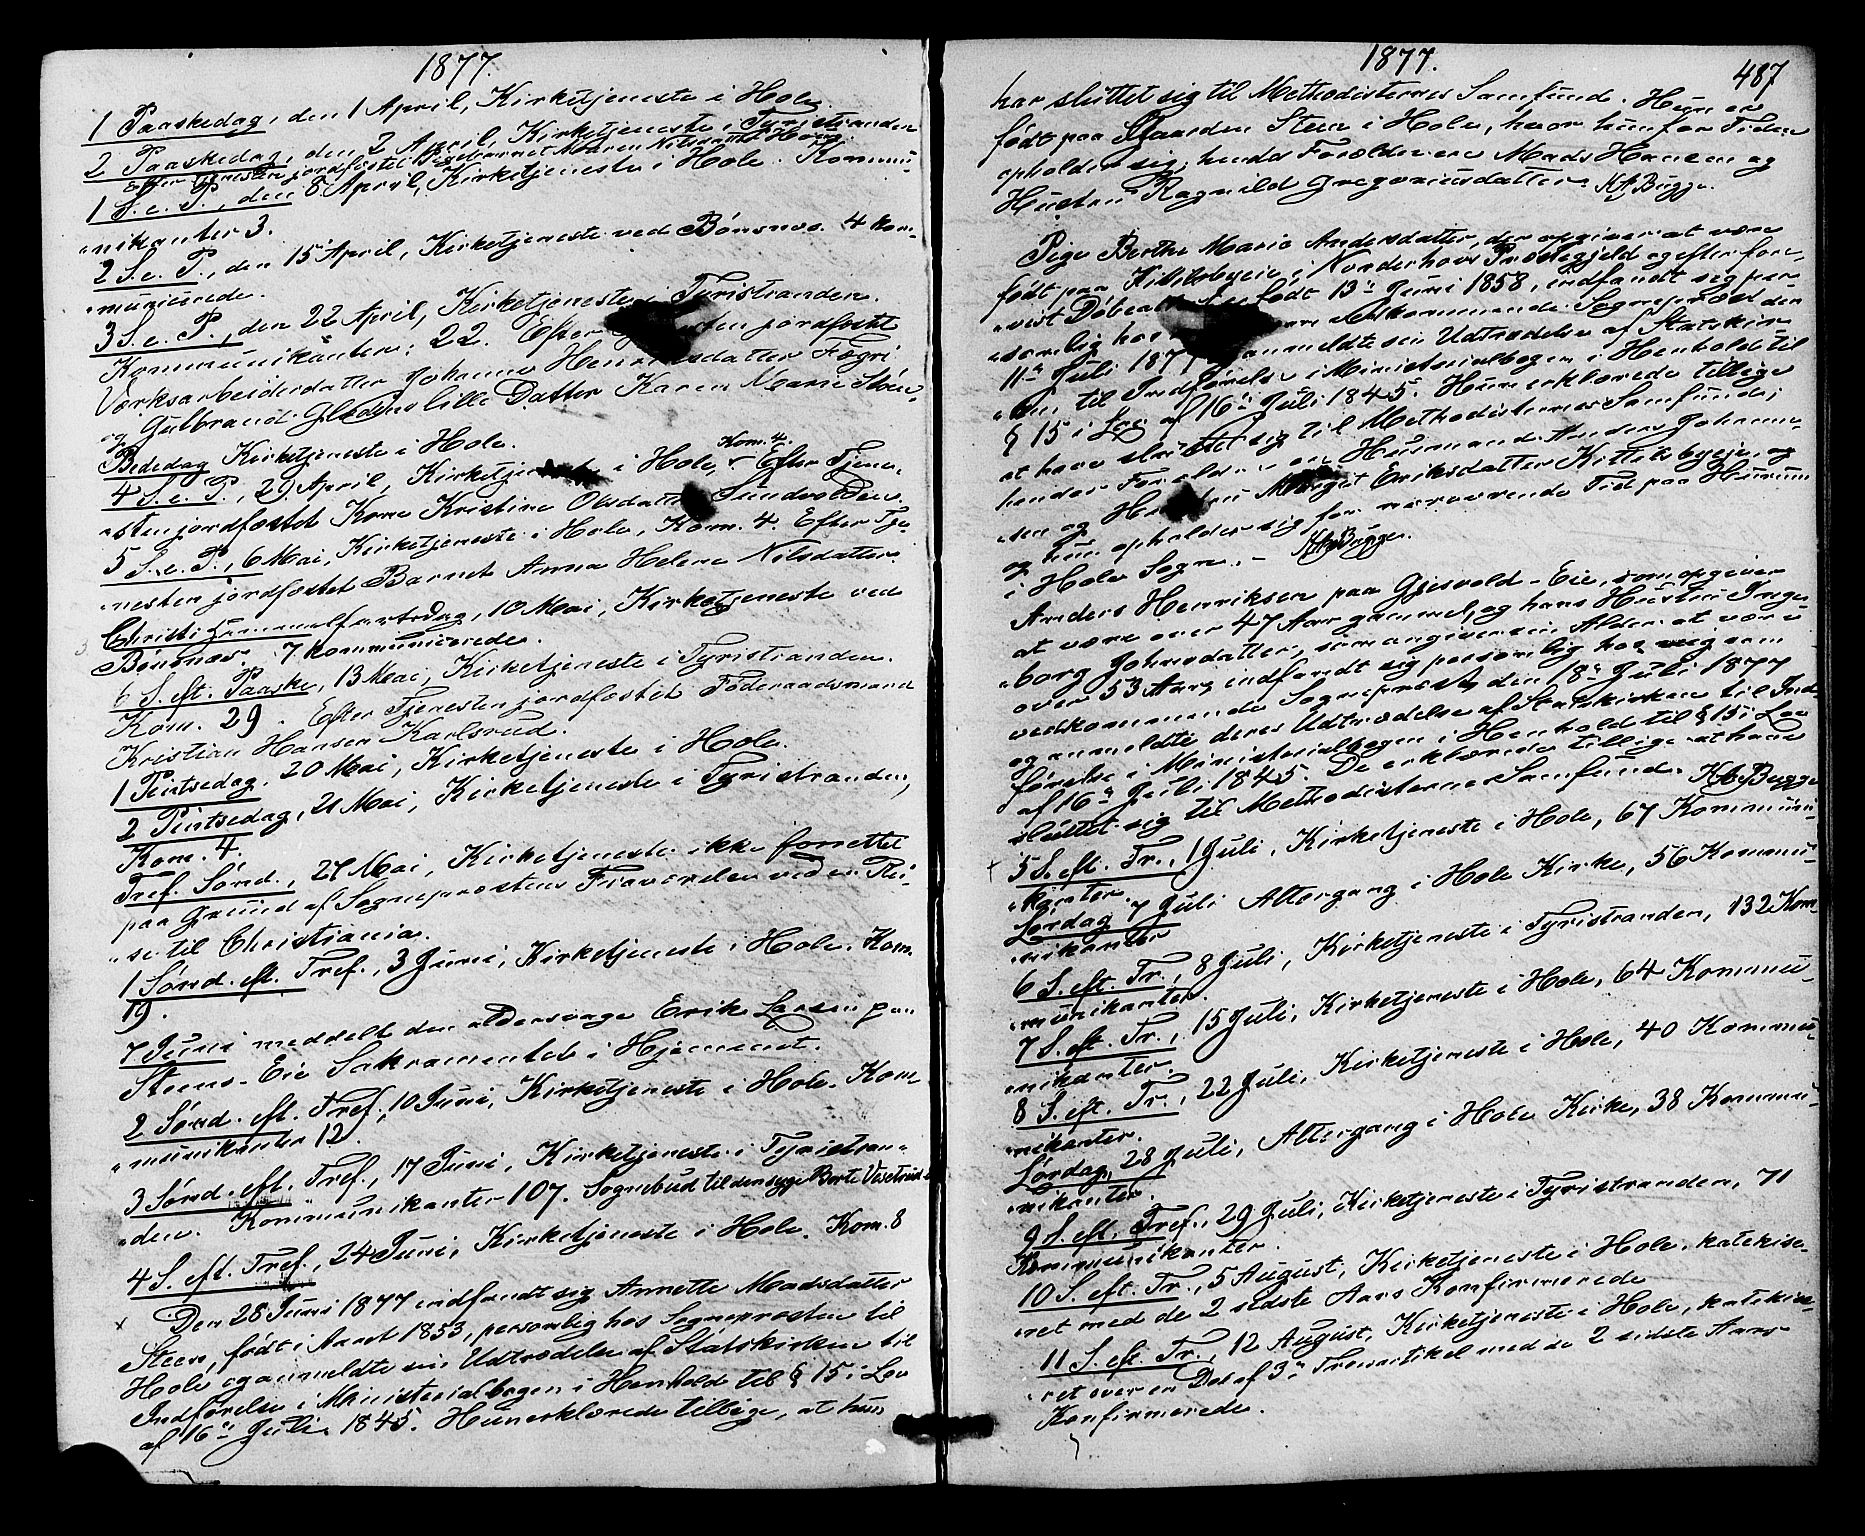 1877.
1 Paaskedag, den 1 April, Kirketjeneste i Hole.
2 Paaskedag, den 2 April, Kirketjeneste i Tyristranden
Efter Tjenesten jordfæstet Maren Nilsdatter
1 S. e. P., den 8 April, Kirketjeneste i Hole. Kommu-
nikanter 3.
2 S. e. P., den 15 April, Kirketjeneste ved Bønsnæs. 4 kom-
municerede.
3 S. e. P., den 22 April, Kirketjeneste i Tyristranden.
Kommunikanter: 22. Efter Tjenesten jordfæstet
Værksarbeiderdatter Johanne Henriksdatter Fægri
og Gulbrand Gledens lille Datter Karen Marie Støen
Bededag Kirketjeneste i Hole.
4 S. e. P., 29 April, Kirketjeneste i Hole, Kom. 4. Efter Tjene-
sten jordfæstet Kone Kristine Olsdatter Sundvolden.
5 S. e. P., 6 Mai, Kirketjeneste i Hole, Kom. 4. Efter Tje-
nesten jordfæstet Barnet Anna Helene Nilsdatter.
Christi Himmelfartsdag, 10 Mai, Kirketjeneste ved
Bønsnæs. 7 kommunicerede.
6 S. eft. Paaske, 13 Mai, Kirketjeneste i Tyristranden.
Kom. 29. Efter Tjenesten jordfæstet Føderaadsmand
Kristian Hansen Karlsrud.
1 Pintsedag, 20 Mai, Kirketjeneste i Hole.
2 Pintsedag, 21 Mai, Kirketjeneste i Tyristranden,
Kom. 4.
Tref. Sønd., 27 Mai, Kirketjeneste ikke forrettet
paa Grund af Sogneprestens Fraværelse ved en Rei-
se til Christiania.
1 Sønd. eft. Tref., 3 Juni, Kirketjeneste i Hole. Kom.
19.
7 Juni meddelt den alderssvage Erik Larsen paa
Steens-Eie Sakramentet i Hjemmet.
2 Sønd. eft. Tref., 10 Juni, Kirketjeneste i Hole. Kom-
munikanter 12.
3 Sønd. eft. Tref., 17 Juni, Kirketjeneste i Tyristran-
den. Kommunikanter 107. Sognebud til den syge Berte
4 S. eft. Tref., 24 Juni, Kirketjeneste i Hole. Kom. 8
x Den 28 Juni 1877 indfandt sig Annette Madsdatter
Steen, født i Aaret 1853, personlig hos Sognepresten til
Hole og anmeldte sin Udtrædelse af Statskirken til
Indførelse i Ministerialbogen i Henhold til § 15 i Lov
af 16de Juli 1845. Hun erklærede tillige, at hun
1877.
487
har sluttet sig til Methodisternes Samfund. Hun er
født paa Gaarden Steen i Hole, hvor hun for Tiden
opholder sig; hendes Forældre ere Mads Hansen og
Hustru Ragnild Gregoriusdatter. Bugge.
Pige Berthe Marie Andersdatter, der opgiver at være
født paa Kittilsbyeie i Norderhovs Præstegjeld og efter fore-
vist Døbeattest født 13de Juni 1858, indfandt sig per-
sonlig hos vedkommende Sogneprest den
11te Juli 1877 og anmeldte sin Udtrædelse af Statskir-
ken til Indførelse i Ministerialbogen i Henhold til
§ 15 i Lov af 16de Juli 1845. Hun erklærede tillige
at have sluttet sig til Methodisternes Samfund;
hendes Forældre ere Husmand Anders Johanne-
sen og Hustru Marget Eriksdatter Kittilsbyeie, og
og hun opholder sig for nærværende Tid paa
i Hole Sogn. – Bugge.
Anders Henriksen paa Gjesvold-Eie, som opgiver
at være over 47 Aar gammel, og hans Hustru Inge-
borg Johnsdatter, som angiver sin Alder at være
over 53 Aar, indfandt sig personlig hos mig som
vedkommende Sogneprest, den 18de Juli 1877
og anmeldte deres Udtrædelse af Statskirken til Ind-
førelse i Ministerialbogen i Henhold til § 15 i Lov
af 16de Juli 1845. De erklærede tillige at have
sluttet sig til Methodisternes Samfund. Bugge
x 5 S. eft. Tr., 1 Juli, Kirketjeneste i Hole, 67 Kommuni-
kanter.
Lørdag 7 Juli Altergang i Hole Kirke, 56 Kommu-
nikanter
6 S. eft. Tr., 8 Juli, Kirketjeneste i Tyristranden, 132 Kom-
munikanter.
7 S. eft. Tr., 15 Juli, Kirketjeneste i Hole, 64 Kommu-
nikanter.
8 S. eft. Tr., 22 Juli, Kirketjeneste i Hole, 40 Kommu-
nikanter.
Lørdag, 28 Juli, Altergang i Hole Kirke, 38 Kommu-
nikanter.
9 S. eft. Tref., 29 Juli, Kirketjeneste i Tyristranden, 71
Kommunikanter.
10 S. eft. Tr., 5 August, Kirketjeneste i Hole, katekise-
ret med de 2 sidste Aars Konfirmerede
11 S. eft. Tr., 12 August, Kirketjeneste i Hole, katekise-
ret over en Del af 3die Troesartikel med de 2 sidste Aars
Konfirmerede.